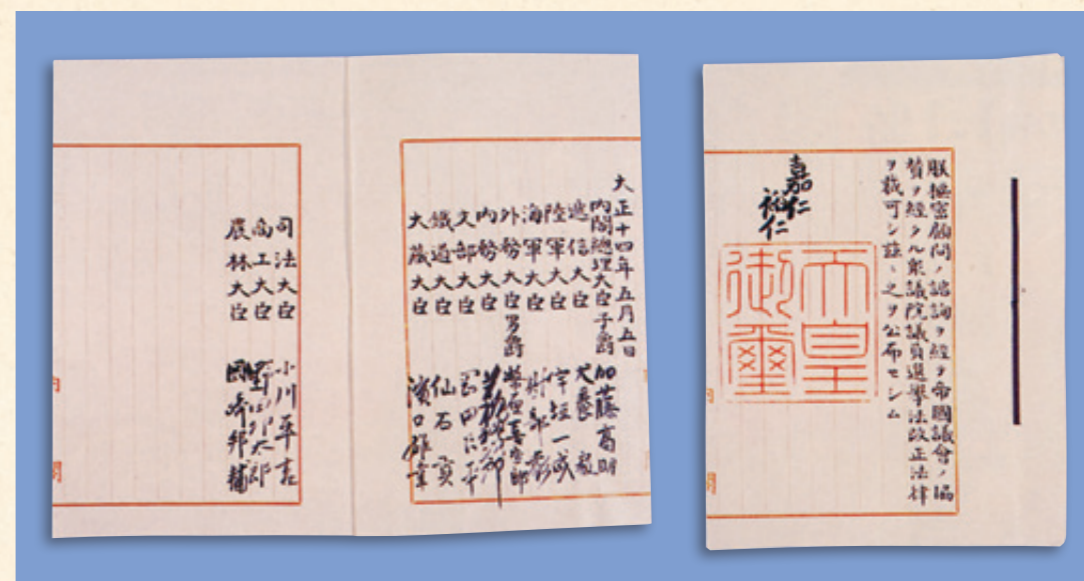 朕樞密顧問ノ諮詢ヲ經テ帝國議會ノ協
贊ヲ經タル衆議院議員選擧法改正法律
ヲ裁可シ茲ニ之ヲ公布セシム
嘉仁
裕仁
天皇
御璽
大正十四年五月五日
內閣總理大臣子爵 加藤高明
遞信大臣 犬養毅
陸軍大臣 宇垣一成
海軍大臣 財部彪
外務大臣男爵 幣原喜重郎
內務大臣 若槻禮次郎
文部大臣 岡田良平
鐵道大臣 仙石貢
大藏大臣 濱口雄幸
司法大臣 小川平吉
商工大臣 野田卯太郎
農林大臣 岡崎邦輔